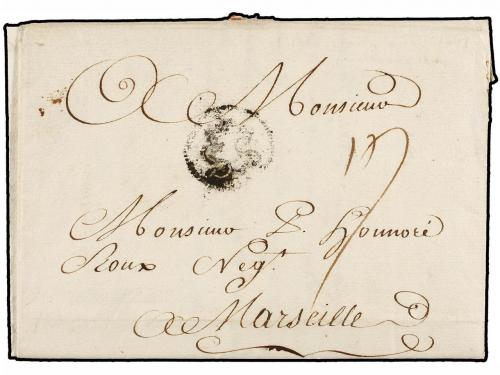 A Monsieur
Monsieur P. Honnoré
Roux Negt.
a Marseille